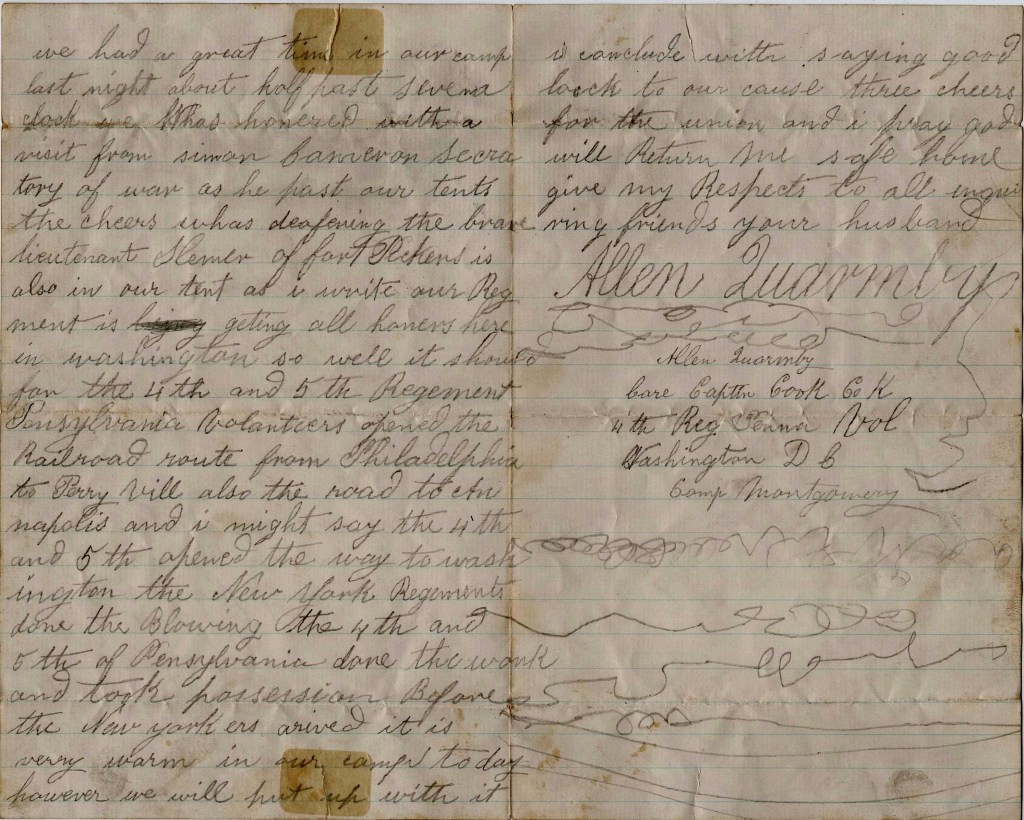 we had a great time in our camp
last night about half past sevena
clock we Whas honered with a
visit from simon Cameron Secra
tory of war as he past our tents
the cheers whas deafening the brave
lieutenant Slemer of fort Pickens is
also in our tent as i write our Reg
ment is geting all honers here
in washington so well it should
for the 4th and 5th Regement
Pensylvania Volanteers opened the
Railroad route from Philadelphia
to Perry Vill also the road to An
napolis and i might say the 4th
and 5th opened the way to wash
ington the New York Regements
done the Blowing the 4th and
5th of Pensylvania done the work
and took possession Before
the New yorkers arived it is
verry warm in our camp today
however we will put up with it
i conclude with saying good
loock to our cause three cheers
for the union and i pray god
will Return me safe home
give my Respects to all inqui
ring friends your husband
Allen Quarmby
Allen Quarmby
Care Captn Cook Co K
4th Reg Penna Vol
Washington D C
Camp Montgomery